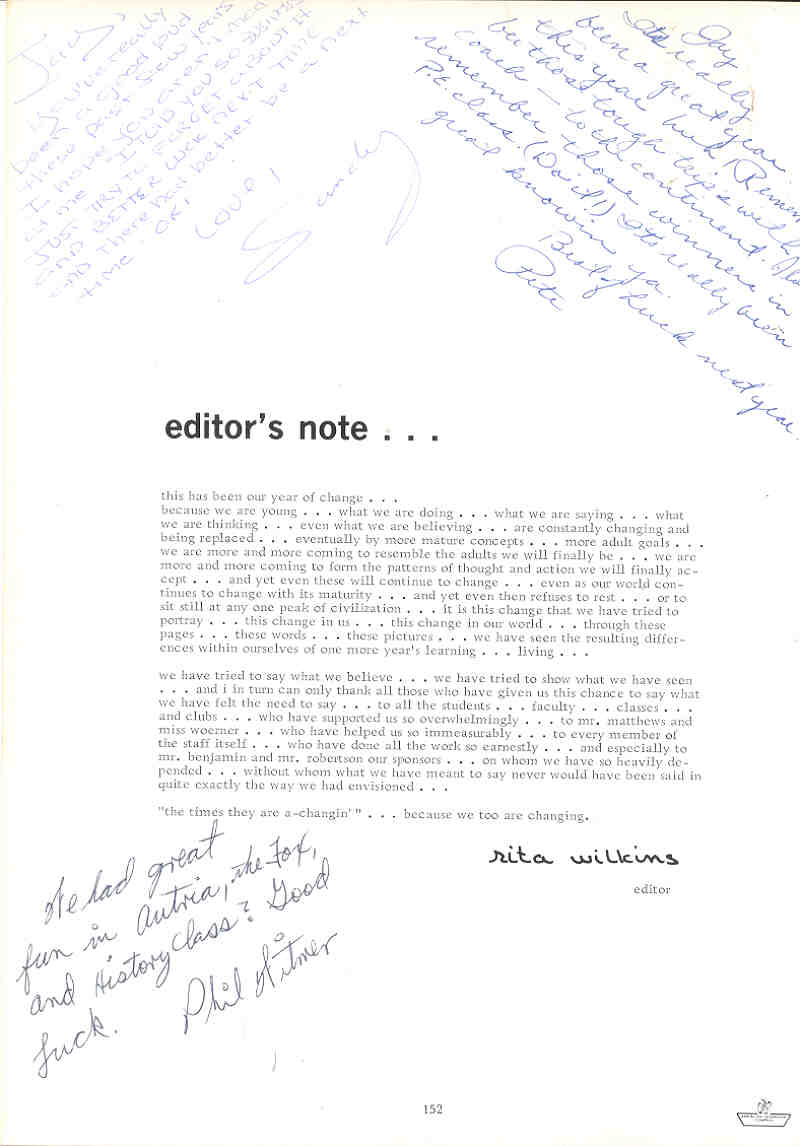 Jay,
You've really
been a good bud
these past few years
I hope you aren't mad
at me. "I told you so
JUST TRY TO FORGET ABOUT IT
AND BETTER LUCK NEXT TIME
AND there had better be a next
time. OK!
LOVE!
Sandy
Jay
Its really
been a great year
this year huh! Remem
ber those tough trips with
coach - to the continent. Also
remember those winners in
P.E. class. (Do it!) Its really been
great knowin ya.
Best of luck next year.
Pete
editor's note . . .
this has been our year of change . . .
because we are young . . . what we are doing . . . what we are saying . . . what
we are thinking . . . even what we are believing . . . are constantly changing and
being replaced . . . eventually by more mature concepts . . . more adult goals . . .
we are more and more coming to resemble the adults we will finally be . . . we are
more and more coming to form the patterns of thought and action we will finally ac-
cept . . . and yet even these will continue to change . . . even as our world con-
tinues to change with its maturity . . . and yet even then refuses to rest . . . or to
sit still at any one peak of civilization . . . it is this change that we have tried to
portray . . . this change in us . . . this change in our world . . . through these
pages . . . these words . . . these pictures . . . we have seen the resulting differ-
ences within ourselves of one more year's learning . . . living . . .
we have tried to say what we believe . . . we have tried to show what we have seen
. . . and i in turn can only thank all those who have given us this chance to say what
we have felt the need to say . . . to all the students . . . faculty . . . classes . . .
and clubs . . . who have supported us so overwhelmingly . . . to mr. matthews and
miss woerner . . . who have helped us so immeasurably . . . to every member of
the staff itself . . . who have done all the work so earnestly . . . and especially to
mr. benjamin and mr. robertson our sponsors . . . on whom we have so heavily de-
pended . . . without whom what we have meant to say never would have been said in
quite exactly the way we had envisioned . . .
"the times they are a-changin' " . . . because we too are changing.
rita wilkins
editor
We had great
fun in Autria, the Fox,
and History Class? Good
luck. Phil Hitner
152